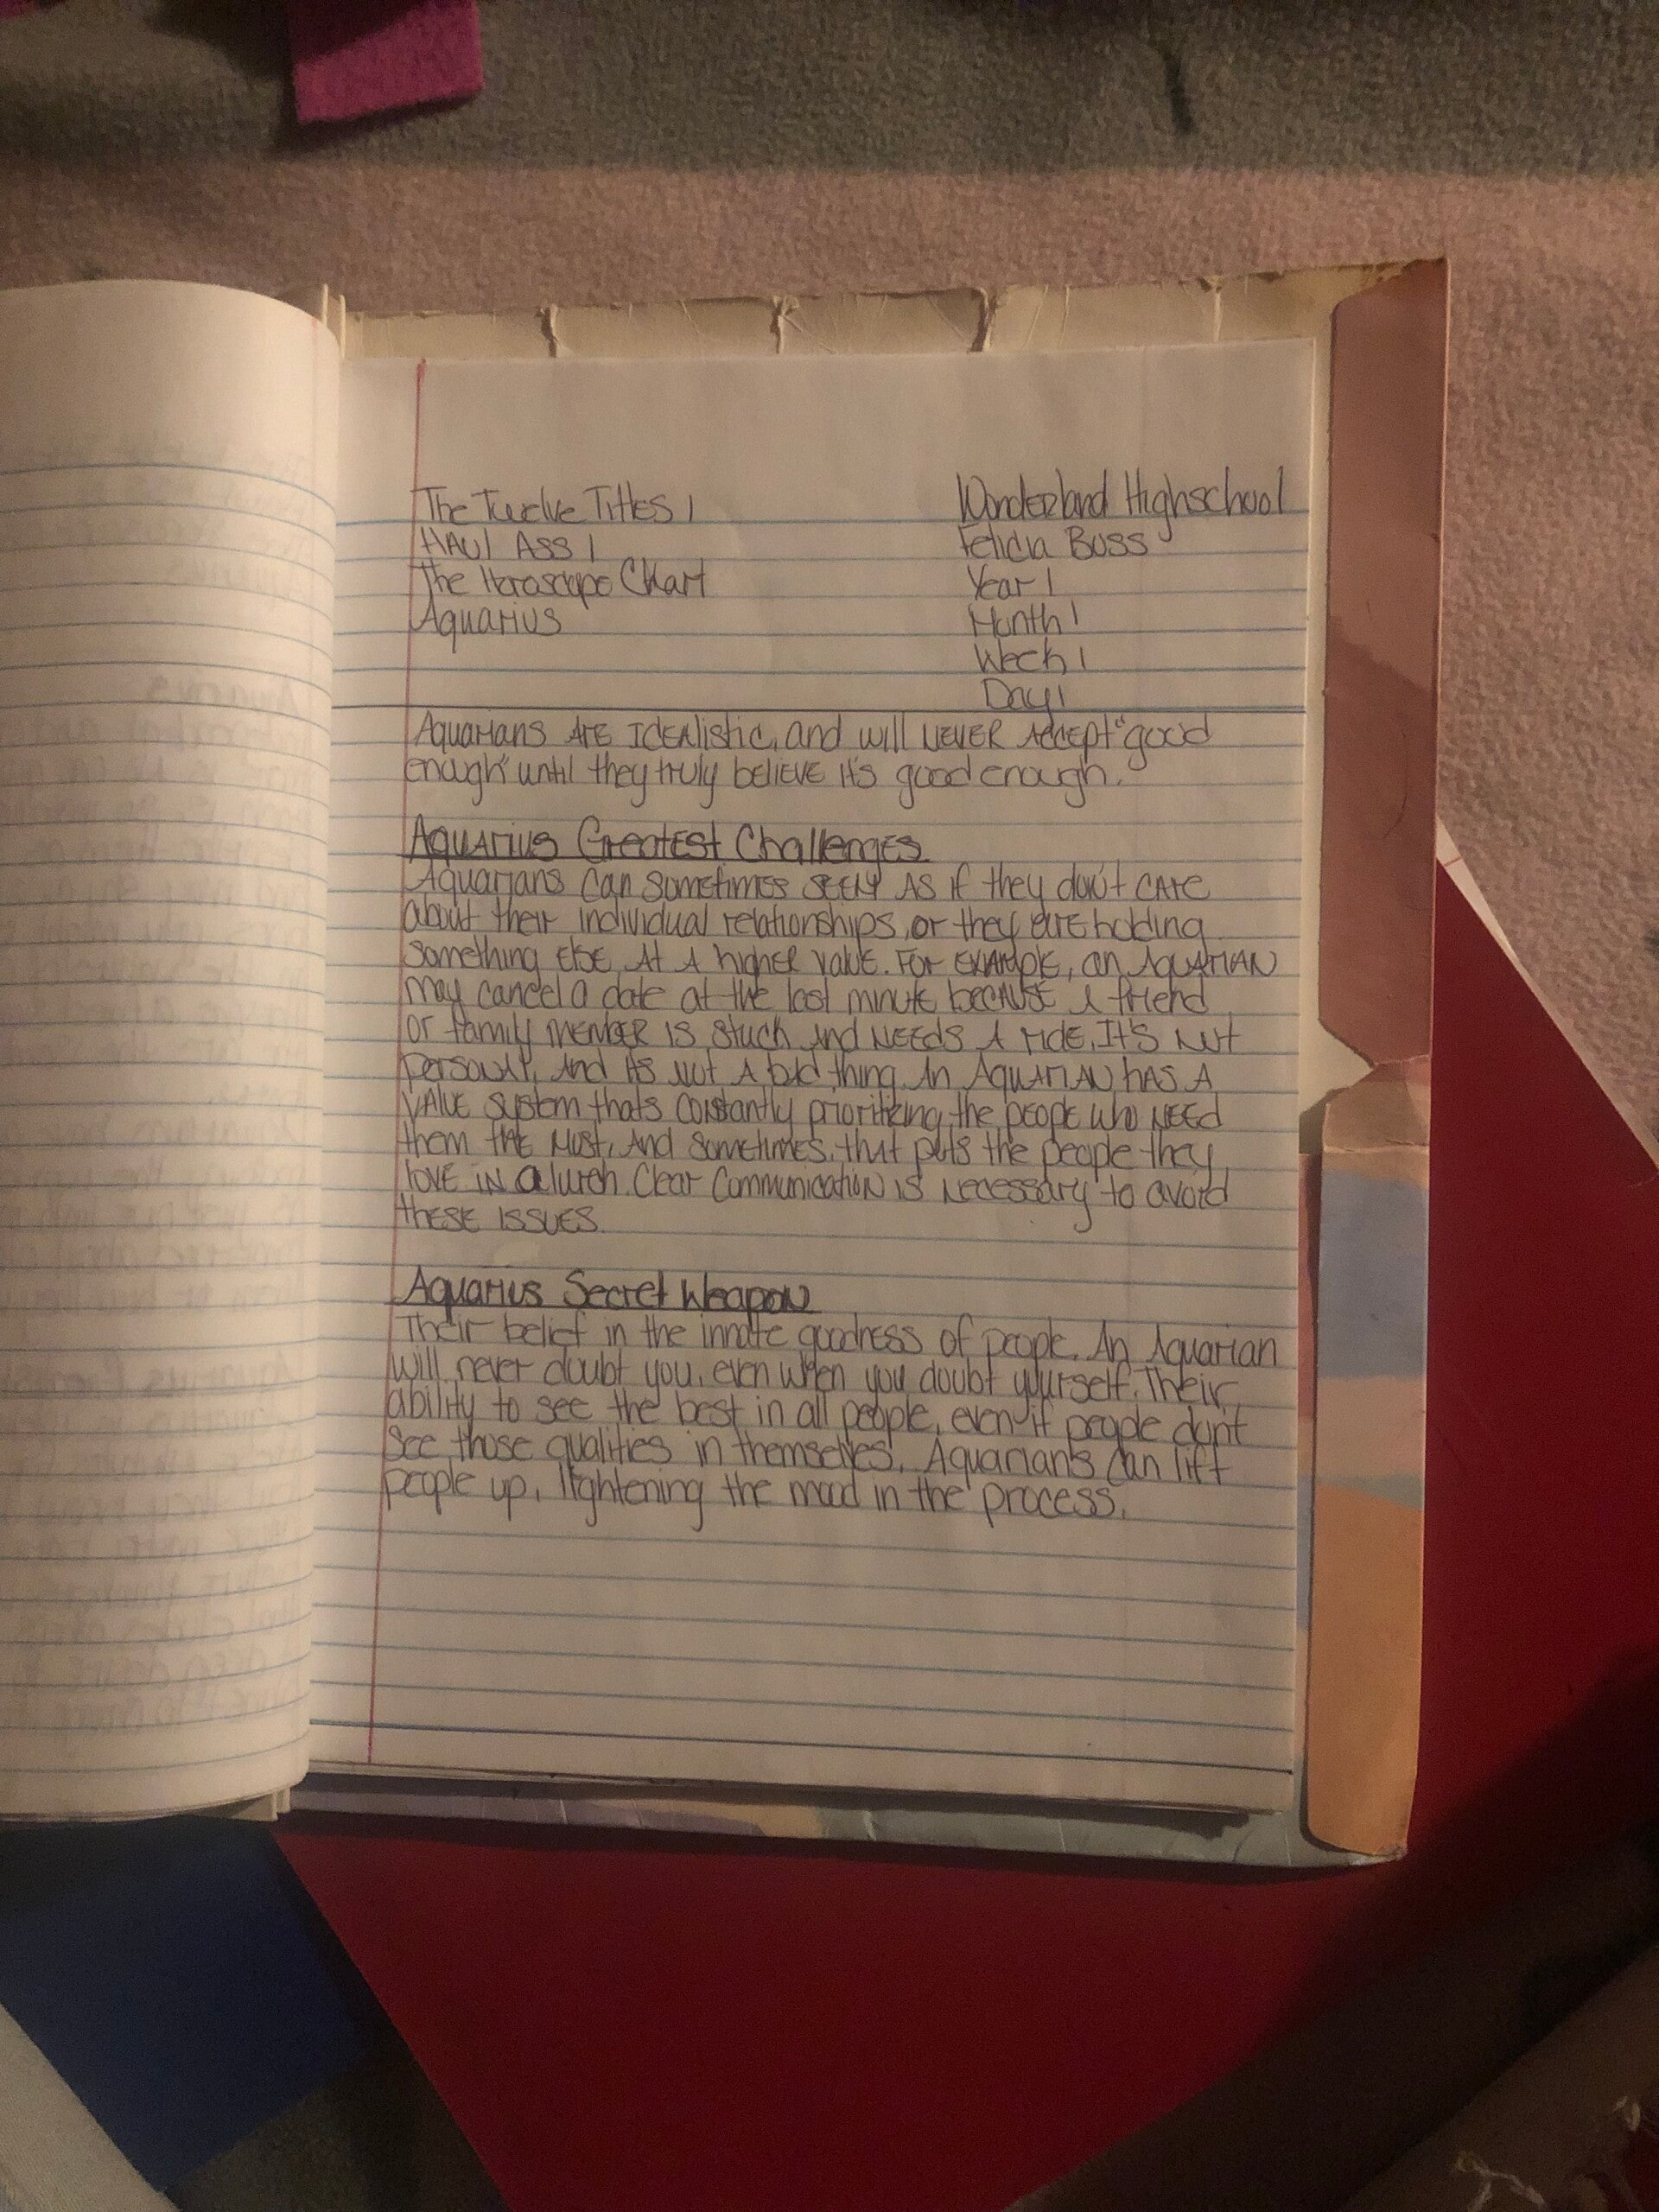 The Twelve Titles 1
Haul Ass 1
The Horoscope Chart
Aquarius
Wonderland Highschool
Felicia Buss
Year 1
Month 1
Week 1
Day 1
Aquarians are idealistic, and will never accept "good
enough" until they truly believe it's good enough.
Aquarius Greatest Challenges
Aquarians can sometimes seem as if they don't care
about their individual relationships, or they are holding
something else at a higher value. For example, an Aquarian
may cancel a date at the last minute because a friend
or family member is stuck and needs a ride. It's not
personal, and its not a bad thing. An Aquarian has a
value system thats constantly prioritizing the people who need
them the most, and sometimes, that puts the people they
love in a lurch. Clear communication is necessary to avoid
these issues.
Aquarius Secret Weapon
Their belief in the innate goodness of people. An Aquarian
will never doubt you, even when you doubt yourself. Their
ability to see the best in all people, even if people dont
see those qualities in themselves. Aquarians can lift
people up, lightening the mood in the process.